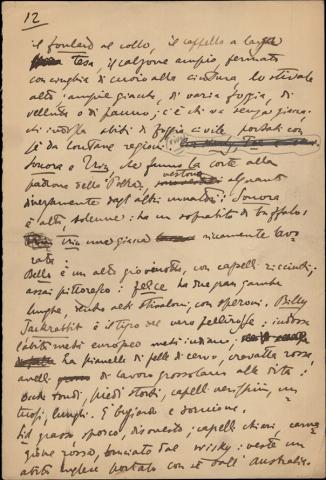 12
il foulard al collo, il cappello a larga
tesa, il calzone ampio, fermato
con cinghia di cuoio alla cintura, lo stivale
alto: ampie giacche, di varia foggia, di
velluto o di panno; c'è chi va senza giacca,
chi indossa abiti di foggia civile portati con
sè da lontane regioni.
Sonora e Trin, che fanno la corte alla
padrona della "Polka", vestono alquanto
diversamente dagli altri minatori: Sonora
è alto, solenne: ha un soprabito di buffalo;
Trin una giacca riccamente lavo
rata:
Bello è un alto giovinotto, con capelli ricciuti,
assai pittoresco: ha due gran gambe
lunghe, dentro alti stivaloni, con speroni. Billy
Jackrabbit è il tipo del vero pellirossa: indossa
abiti metà europei metà indiani,
ha pianelle di pelle di cervo, cravatta rossa,
anelli di lavoro grossolano alle dita:
occhi tondi, piedi storti, capelli nerissimi, un
tuosi, lunghi. È bugiardo e sornione.
Sid grasso, sporco, disonesto; capelli chiari, carna
gione rossa, bruciato dal wisky: veste un
abito inglese portato con sè dall'Australia.